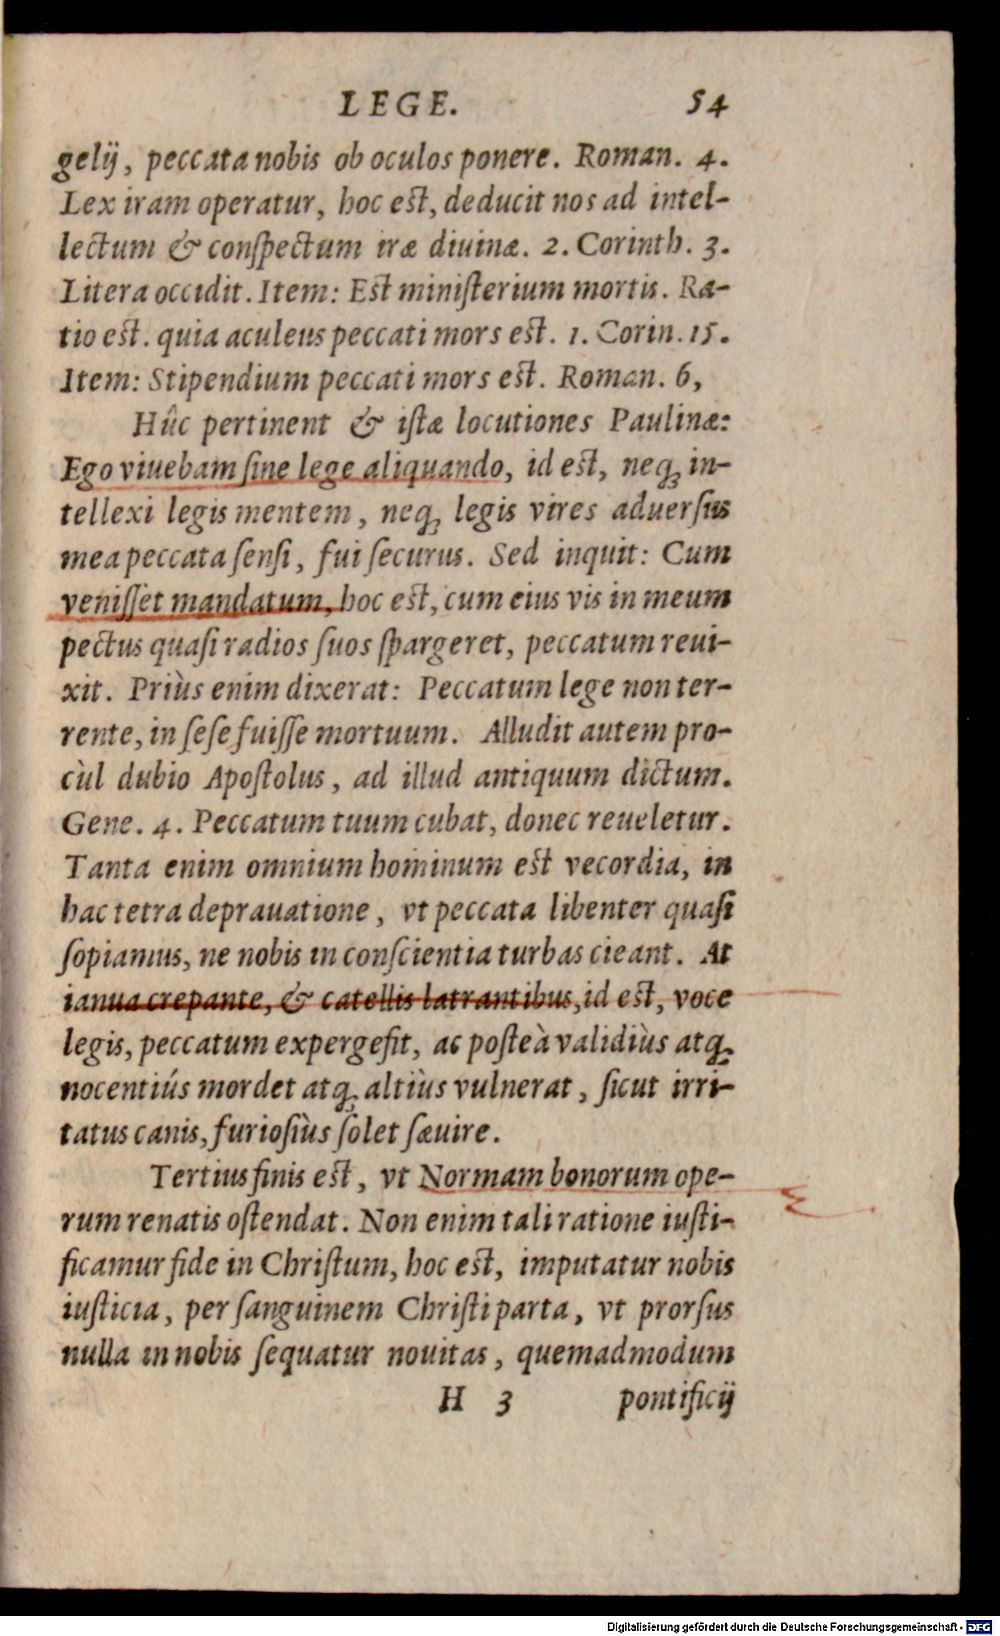 LEGE. 54
gelij, peccata nobis ob oculos ponere. Roman. 4.
Lex iram operatur, hoc est, deducit nos ad intel-
lectum & conſpectum iræ diuinæ. 2. Corinth. 3.
Litera occidit. Item: Est miniſterium mortis. Ra-
tio est. quia aculeus peccati mors est. 1. Corin. 15.
Item: Stipendium peccati mors est. Roman. 6,
Hûc pertinent & iſtæ locutiones Paulinæ:
Ego viuebam ſine lege aliquando, id est, neq; in-
tellexi legis mentem, neq; legis vires aduerſus
mea peccata ſenſi, fui ſecurus. Sed inquit: Cum
veniſſet mandatum, hoc est, cum eius vis in meum
pectus quaſi radios ſuos ſpargeret, peccatum reui-
xit. Priùs enim dixerat: Peccatum lege non ter-
rente, in ſeſe fuiſſe mortuum. Alludit autem pro-
cùl dubio Apoſtolus, ad illud antiquum dictum.
Gene. 4. Peccatum tuum cubat, donec reueletur.
Tanta enim omnium hominum est vecordia, in
hac tetra deprauatione, vt peccata libenter quaſi
ſopiamus, ne nobis in conſcientia turbas cieant. At
ianua crepante, & catellis latrantibus, id est, voce
legis, peccatum expergefit, ac poſteà validiùs atq;
nocentiús mordet atq; altiùs vulnerat, ſicut irri-
tatus canis, furioſiùs ſolet ſæuire.
Tertius finis est, vt Normam bonorum ope-
rum renatis oſtendat. Non enim tali ratione iuſti-
ficamur fide in Chriſtum, hoc est, imputatur nobis
iuſticia, per ſanguinem Chriſti parta, vt prorſus
nulla in nobis ſequatur nouitas, quemadmodum
H 3 pontificij
Digitalisierung gefördert durch die Deutsche Forschungsgemeinschaft - DFG